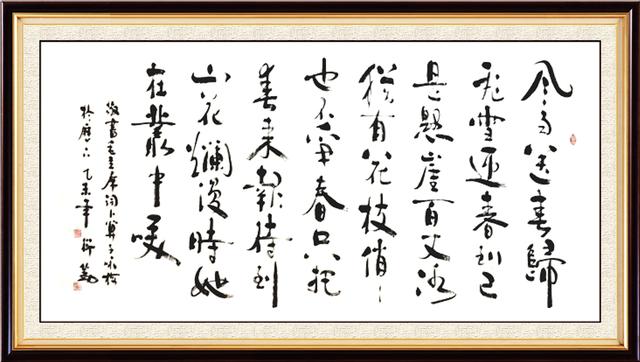 风雨送春歸
飛雪迎春到已
是懸崖百丈冰
猶有花枝俏々
也不争春只把
春来報待到
山花爛漫時她
在叢中咲
敬書毛主席詞卜算子詠梅
於 乙未年